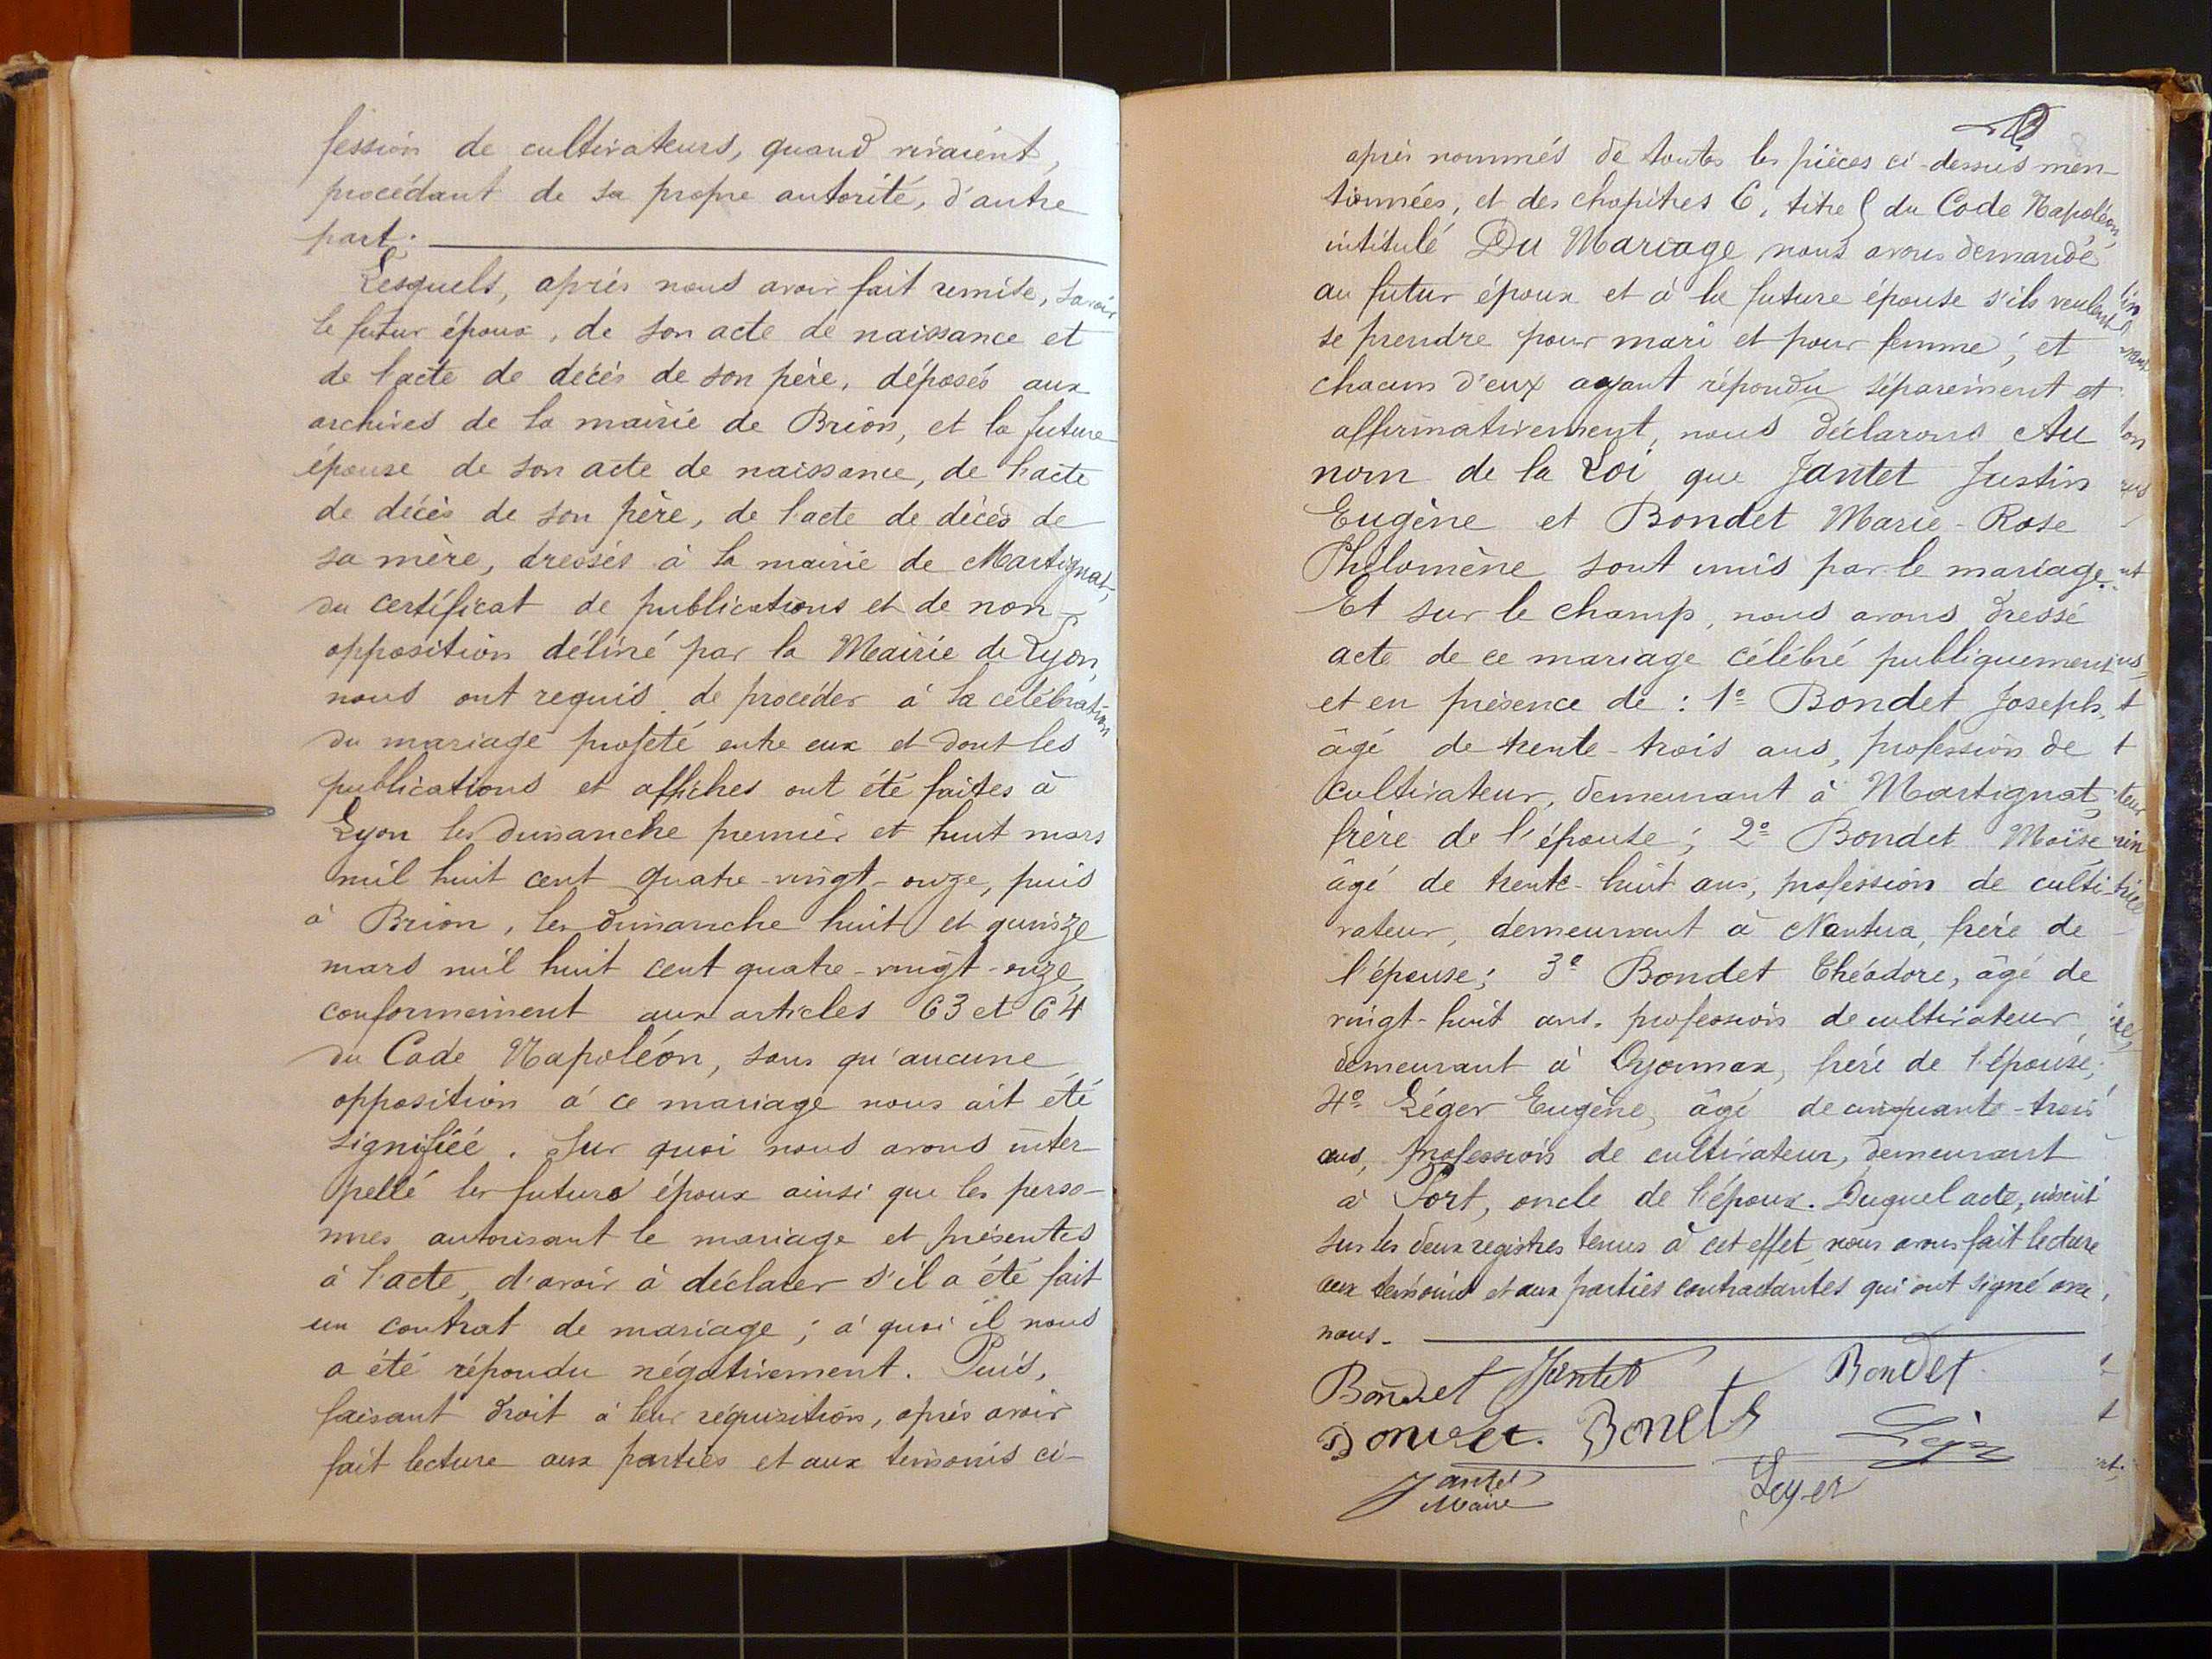 fession de cultivateurs, quand vivaient,
procédant de sa propre autorité, d'autre
part.
Lesquels, après nous avoir fait remise, savoir
le futur époux, de son acte de naissance et
de l'acte de décès de son père, déposés aux
archives de la mairie de Brion, et la future
épouse de son acte de naissance, de l'acte
de décès de son père, de l'acte de décès de
sa mère, dressés à la mairie de Martignat,
du certificat de publications et de non-
opposition délivré par la Mairie de Lyon,
nous ont requis de procéder à la célébration
du mariage projeté entre eux et dont les
publications et affiches ont été faites à
Lyon les dimanche premier et huit mars
mil huit cent quatre-vingt-onze, puis
à Brion, les dimanche huit et quinze
mars mil huit cent quatre-vingt-onze,
conformément aux articles 63 et 64
du Code Napoléon, sans qu'aucune
opposition à ce mariage nous ait été
signifiée. Sur quoi nous avons inter-
pellé les futurs époux ainsi que les perso-
nnes autorisant le mariage et présentes
à l'acte, d'avoir à déclarer s'il a été fait
un contrat de mariage; à quoi il nous
a été répondu négativement. Puis,
faisant droit à leur réquisition, après avoir
fait lecture aux parties et aux témoins ci-
après nommés de toutes les pièces ci-dessus men-
tionnées, et des chapitres 6, titre 5 du Code Napoléon,
intitulé Du Mariage nous avons demandé
au futur époux et à la future épouse s'ils veulent
se prendre pour mari et pour femme; et
chacun d'eux ayant répondu séparément et
affirmativement, nous déclarons Au
nom de la Loi que Jantet Justin
Eugène et Bondet Marie-Rose
Philomène sont unis par le mariage.
Et sur le champ, nous avons dressé
acte de ce mariage célébré publiquement
et en présence de : 1º Bondet Joseph,
âgé de trente-trois ans, profession de
cultivateur, demeurant à Martignat,
frère de l'épouse; 2º Bondet Moïse
âgé de trente-huit ans, profession de culti-
vateur, demeurant à Nantua, frère de
l'épouse; 3º Bondet Théodore, âgé de
vingt-huit ans, profession de cultivateur
demeurant à Oyonnax, frère de l'épouse;
4º Léger Eugène, âgé de cinquante-trois
ans, profession de cultivateur, demeurant
à Port, oncle de l'époux. Duquel acte, inscrit
sur les deux registres tenus à cet effet, nous avons fait lecture
aux témoins et aux parties contractantes qui ont signé avec
nous.
Bondet Jantet Bondet
Bondet. Bonets
Jantet Leger
Maire